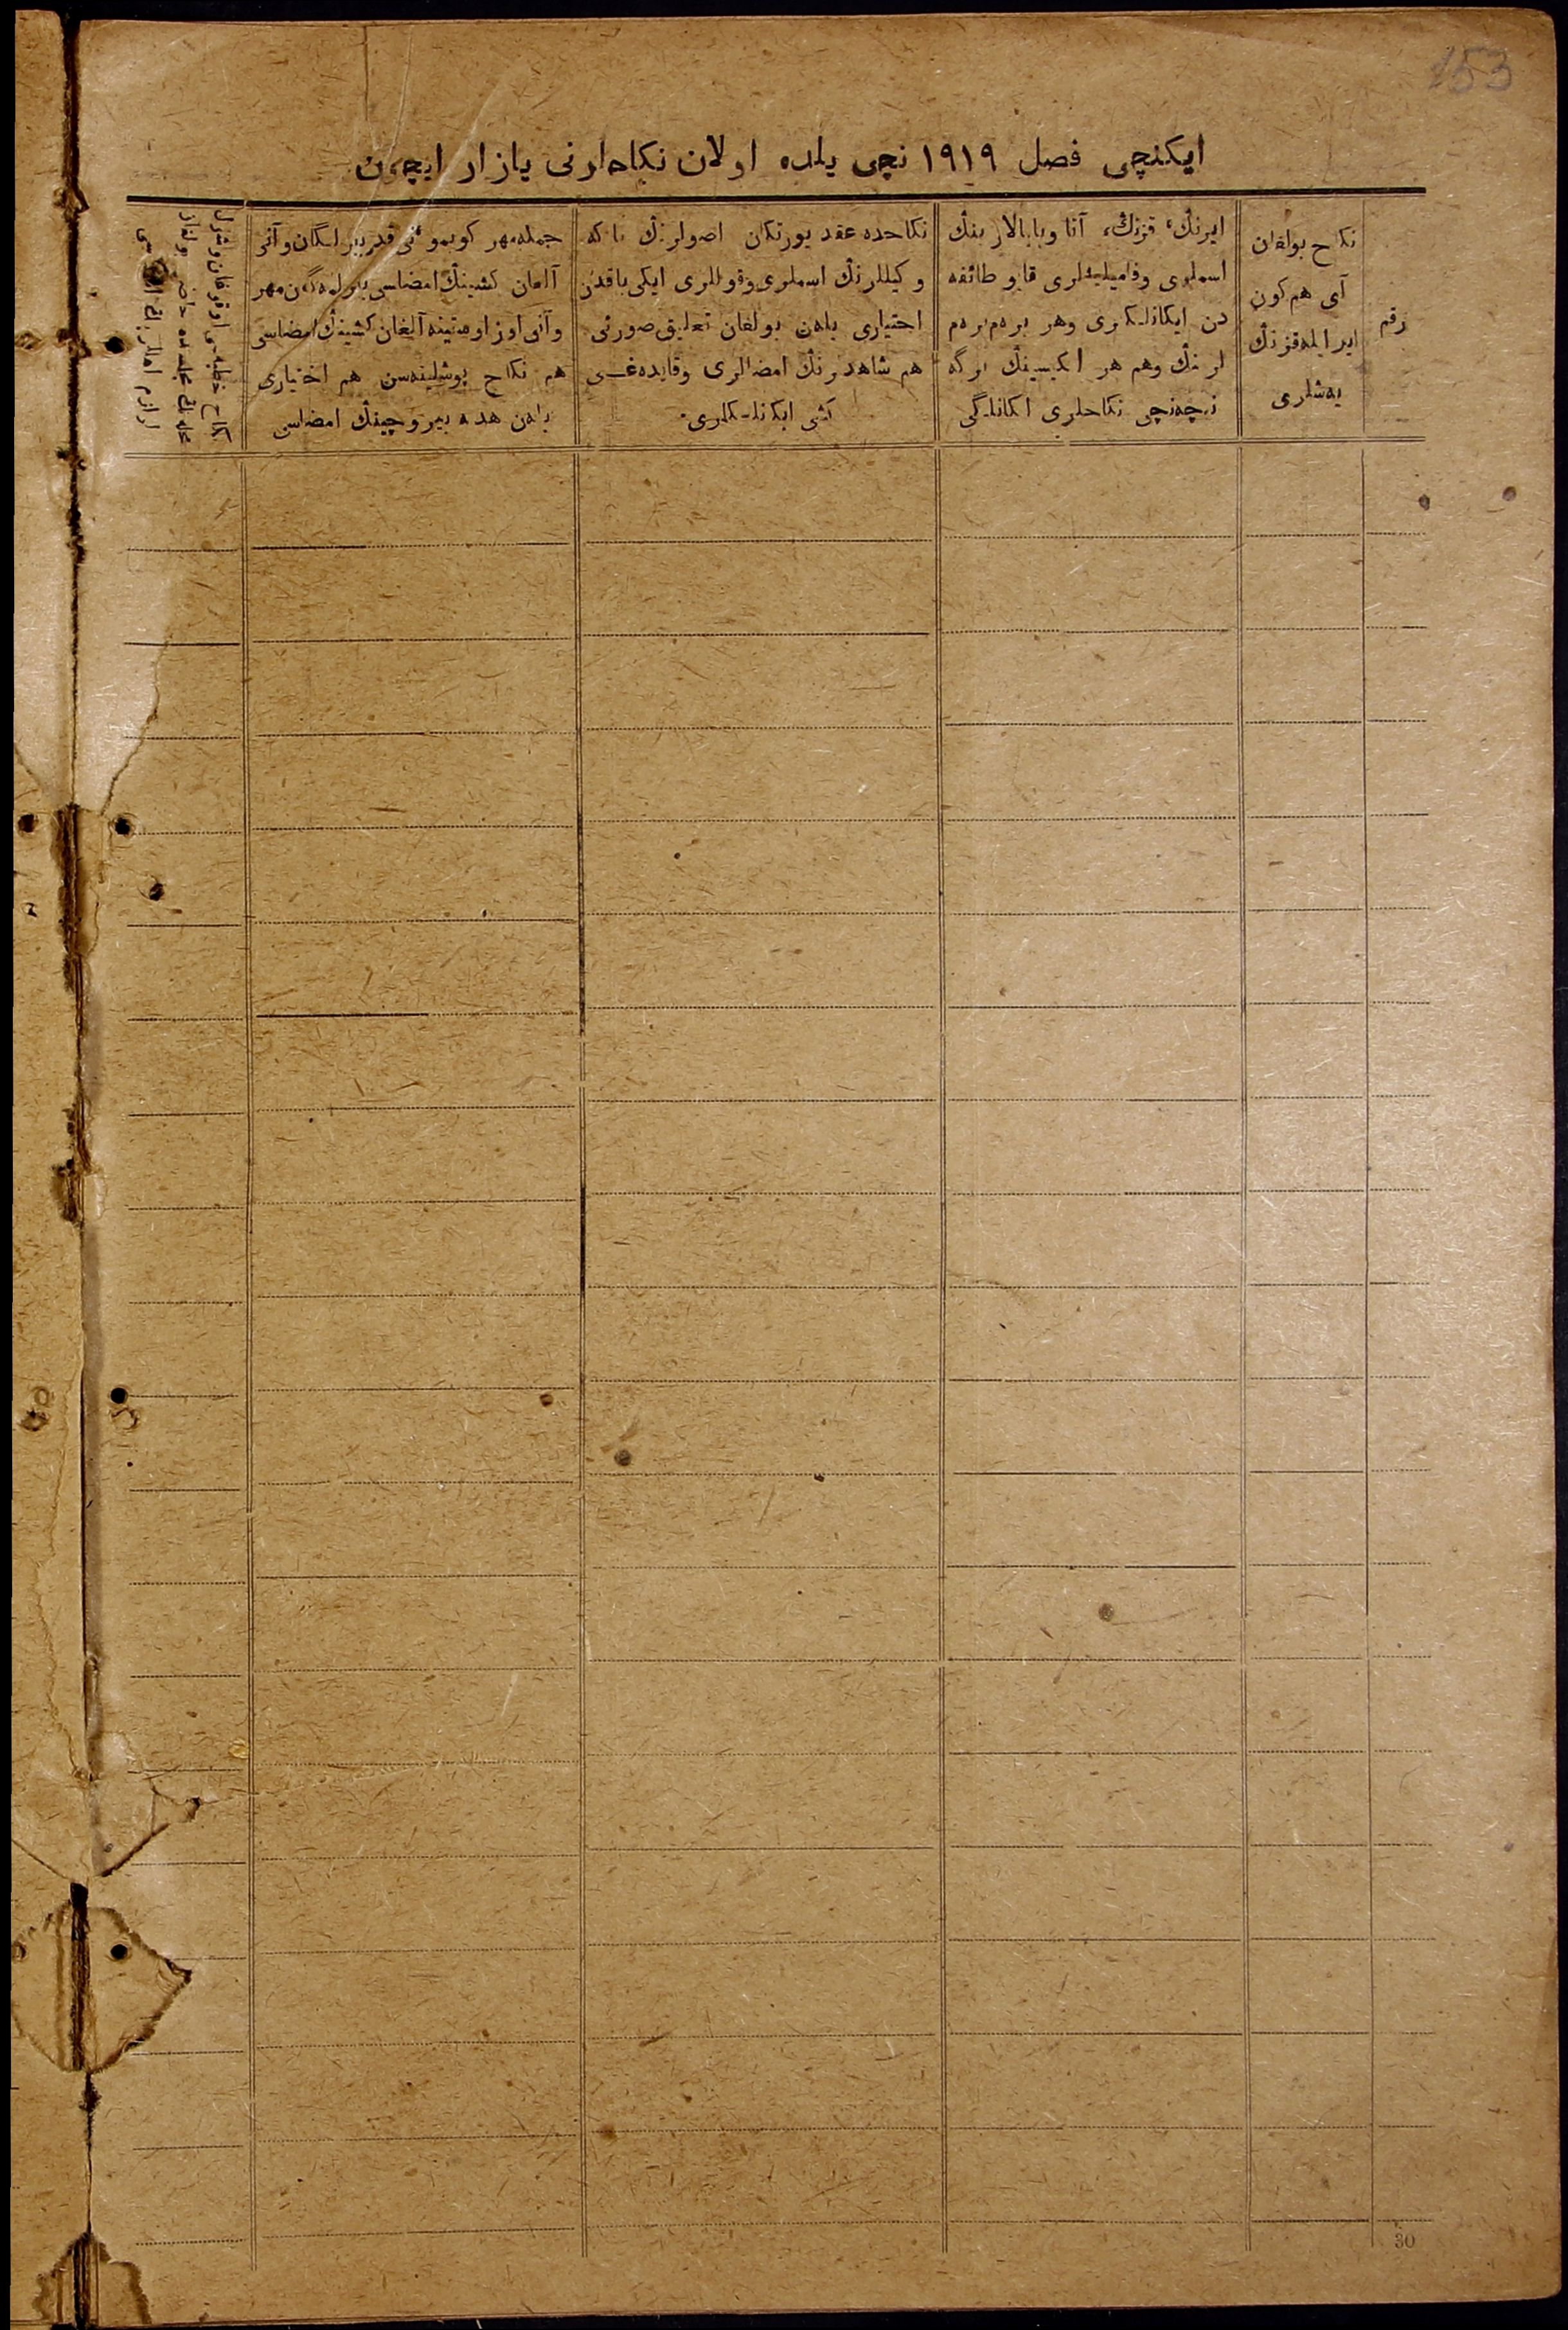 153
ایکنچی فصل ۱۹۱۹ نچی یلده اولان نکاحلرنی یازار ایچون
رقم
نکاح بولغان
آی هم کون
ایر ایله قزنڭ
یەشلری
ایرنڭ، قزنڭ، آتا وبابالارینڭ
اسملری وفامیلیەلری قایو طائفه
دن ایکانلکلری وهر برەم برەم
لرنڭ وهم هر ایکیسینڭ برگه
نچەنچی نکاحلری ایکانلگی
نکاحده عقد یورتکان اصولرنڭ ناکه
وکیللرنڭ اسملری وقوللری ایکی یاقدن
اختیاری بلەن بولغان تعلیق صورتی
هم شاهدلرنڭ امضالری وقایده غسی
کشی ایکانلکلری.
جمله مهر کوبمو نی قدر بیرلگان وآنی
آلغان کشینڭ امضاسی بیرلمەگەن مهر
وآنی اوز اوستینه آلغان کشینڭ امضاسی
هم نکاح بوشلینەسن هم اختیاری
بلەن هدیه بیروچینڭ امضاسی
نکاح خطبەسی اوقوغان
30